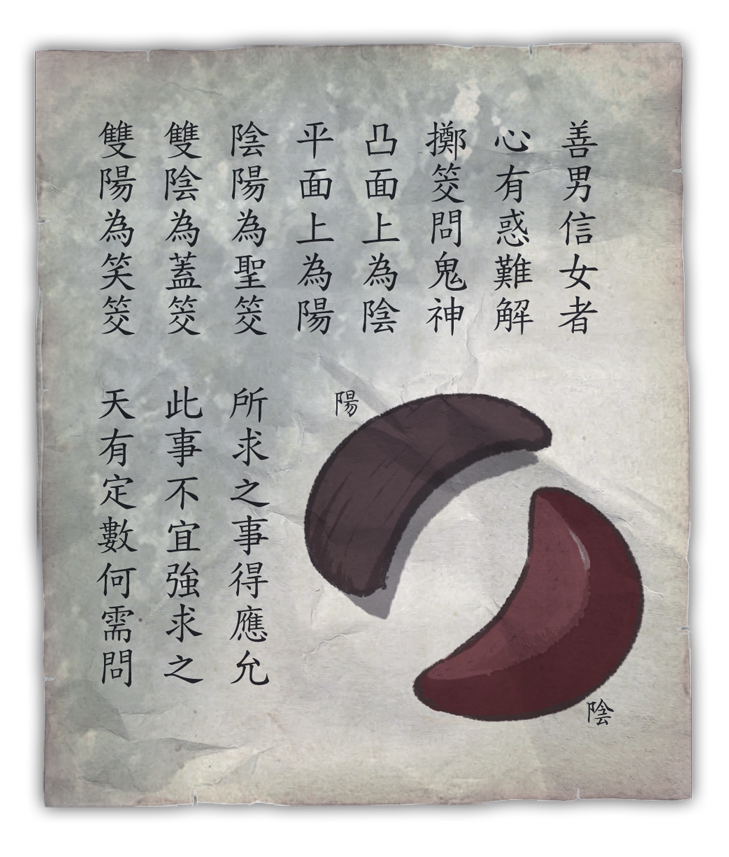 善男信女者
心有惑難解
擲筊問鬼神
凸面上為陰
平面上為陽
陰陽為聖筊
所求之事得應允
雙陰為蓋筊
此事不宜強求之
雙陽為笑筊
天有定數何需問
陽
陰